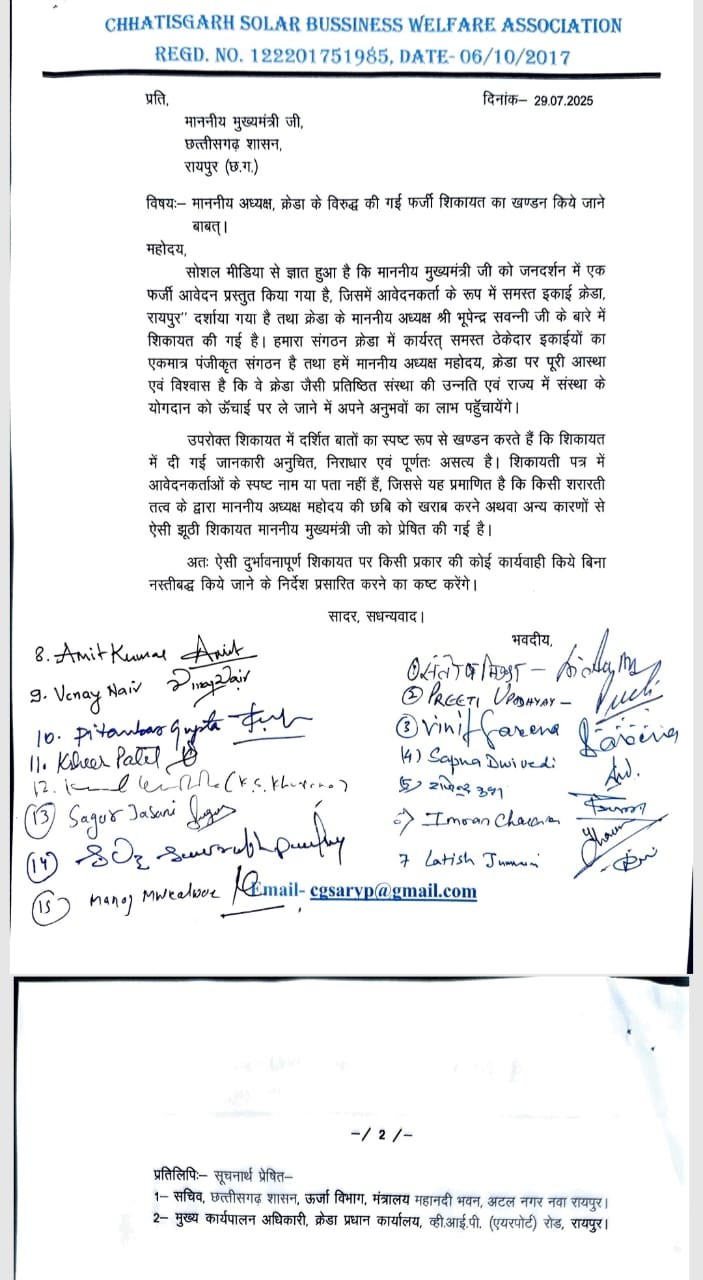 CHHATISGARH SOLAR BUSSINESS WELFARE ASSOCIATION
REGD. NO. 122201751985, DATE- 06/10/2017
प्रति,
दिनांक– 29.07.2025
माननीय मुख्यमंत्री जी,
छत्तीसगढ़ शासन,
रायपुर (छ.ग.)
विषयः– माननीय अध्यक्ष, क्रेडा के विरुद्ध की गई फर्जी शिकायत का खण्डन किये जाने
बाबत्।
महोदय,
सोशल मीडिया से ज्ञात हुआ है कि माननीय मुख्यमंत्री जी को जनदर्शन में एक
फर्जी आवेदन प्रस्तुत किया गया है, जिसमें आवेदनकर्ता के रूप में समस्त इकाई क्रेडा,
रायपुर" दर्शाया गया है तथा क्रेडा के माननीय अध्यक्ष श्री भूपेन्द्र सवन्नी जी के बारे में
शिकायत की गई है। हमारा संगठन क्रेडा में कार्यरत् समस्त ठेकेदार इकाईयों का
एकमात्र पंजीकृत संगठन है तथा हमें माननीय अध्यक्ष महोदय, क्रेडा पर पूरी आस्था
एवं विश्वास है कि वे क्रेडा जैसी प्रतिष्ठित संस्था की उन्नति एवं राज्य में संस्था के
योगदान को ऊँचाई पर ले जाने में अपने अनुभवों का लाभ पहुँचायेंगे।
उपरोक्त शिकायत में दर्शित बातों का स्पष्ट रूप से खण्डन करते हैं कि शिकायत
में दी गई जानकारी अनुचित, निराधार एवं पूर्णतः असत्य है। शिकायती पत्र में
आवेदनकर्ताओं के स्पष्ट नाम या पता नहीं हैं, जिससे यह प्रमाणित है कि किसी शरारती
तत्व के द्वारा माननीय अध्यक्ष महोदय की छबि को खराब करने अथवा अन्य कारणों से
ऐसी झूठी शिकायत माननीय मुख्यमंत्री जी को प्रेषित की गई है।
अतः ऐसी दुर्भावनापूर्ण शिकायत पर किसी प्रकार की कोई कार्यवाही किये बिना
नस्तीबद्ध किये जाने के निर्देश प्रसारित करने का कष्ट करेंगे।
सादर, सधन्यवाद।
भवदीय,
② PREETI UPADHYAY –
③ Vinit
(4) Sapna Dwivedi
Imran
7 Latish
8. Amit Kumar Amit
9. Venay Nair
10. Pitambar Gupta
11. Kisher Patel
12. (K.S.
(13) Sagar Jasani
(14)
(15) Manoj
Email- cgsaryp@gmail.com
–/ 2 /–
प्रतिलिपिः– सूचनार्थ प्रेषित–
1– सचिव, छत्तीसगढ़ शासन, ऊर्जा विभाग, मंत्रालय महानदी भवन, अटल नगर नवा रायपुर।
2– मुख्य कार्यपालन अधिकारी, क्रेडा प्रधान कार्यालय, व्ही.आई.पी. (एयरपोर्ट) रोड, रायपुर।